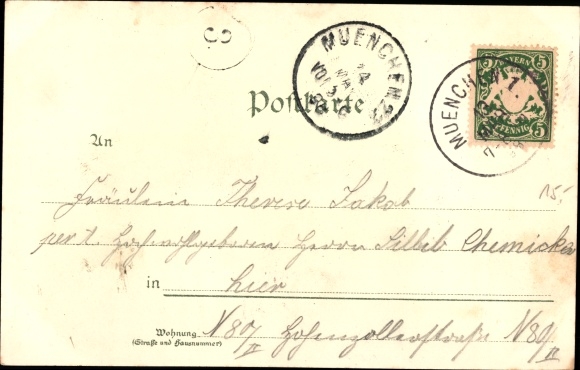 S
MUENCHEN 23
14
MAI
VOR
MUENCHEN 1.
BAYERN
5 5
PFENNIG
5 5
Postkarte
An
Fräulein Therese Jakob
per t. Hochwohlgeboren Herrn Chemiker
15,-
in hier
Wohnung N 80/II Hohenzollerstraße N 80/II
(Straße und Hausnummer)